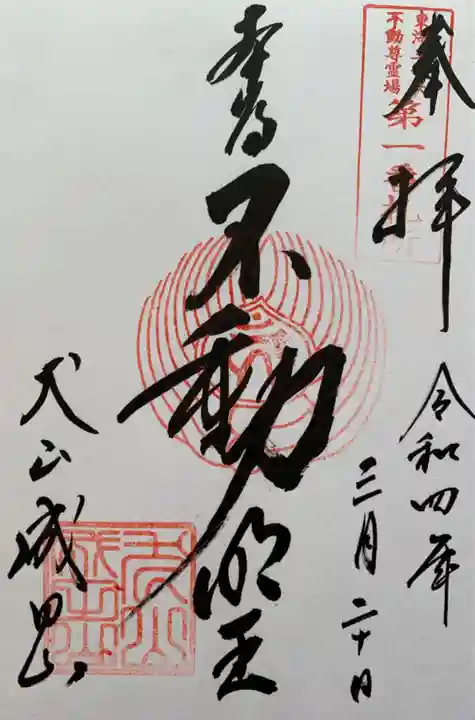 奉拝
東海三十六
不動尊霊場
第一番札所
令和四年
三月二十日
本尊
不動明王
犬山成田山